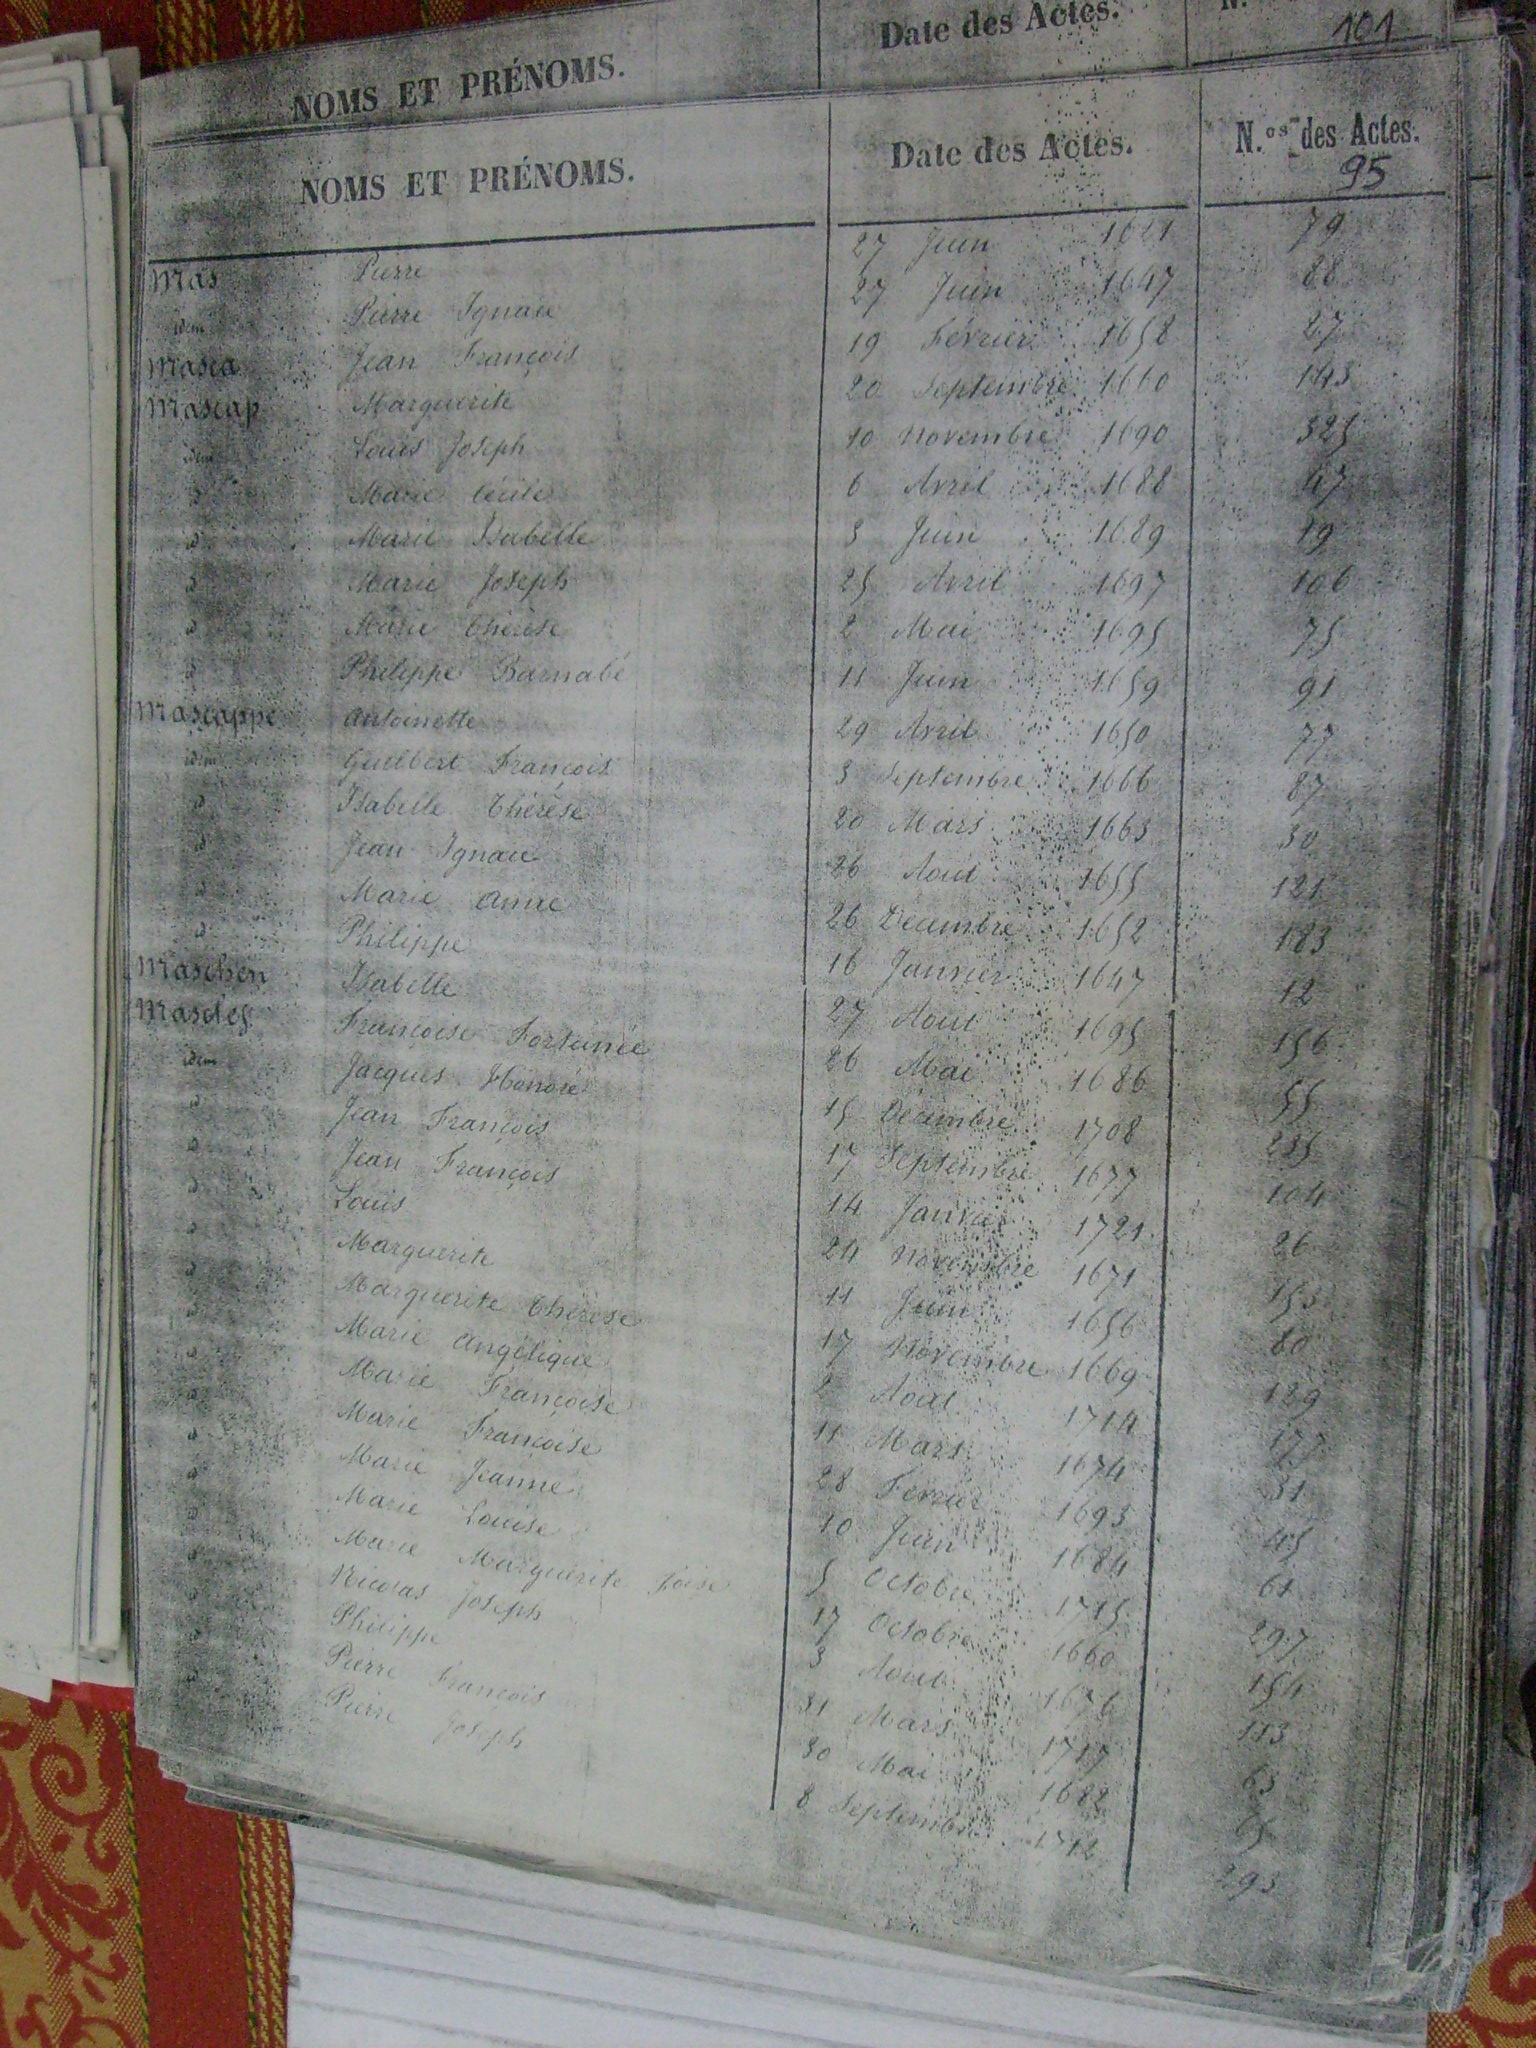 NOMS ET PRÉNOMS. Date des Actes. N.
101
NOMS ET PRÉNOMS. Date des Actes. N.os des Actes.
95
Mas Pierre 27 Juin 1621 79
idem Pierre Ignace 27 Juin 1647 88
Masca Jean François 19 Février 1658 27
Mascap Marguerite 20 Septembre 1660 143
idem Louis Joseph 10 Novembre 1690 325
d Marie Cécile 6 Avril 1688 47
d Marie Isabelle 3 Juin 1689 19
d Marie Joseph 25 Avril 1697 106
d Marie Thérèse 2 Mai 1695 75
d Philippe Barnabé 11 Juin 1659 91
Mascappe Antoinette 29 Avril 1650 77
idem Guilbert François 3 Septembre 1666 87
d Isabelle Thérèse 20 Mars 1663 30
d Jean Ignace 26 Aout 1655 121
d Marie Anne 26 Décembre 1652 183
d Philippe 16 Janvier 1647 12
Maschen Isabelle 27 Aout 1695 156
Masclef Françoise Fortunée 26 Mai 1686 55
idem Jacques Honoré 15 Décembre 1708 235
d Jean François 17 Septembre 1677 104
d Jean François 14 Janvier 1721 26
d Louis 24 Novembre 1671 153
d Marguerite 11 Juin 1656 80
d Marguerite Thérèse 17 Novembre 1669 189
d Marie Angélique 2 Aout 1714 177
d Marie Françoise 11 Mars 1674 31
d Marie Françoise 28 Février 1693 45
d Marie Jeanne 10 Juin 1684 61
d Marie Louise 5 Octobre 1715 297
d Marie Marguerite 17 Octobre 1660 154
d Nicolas Joseph 3 Aout 1676 113
d Philippe 31 Mars 1717 63
d Pierre François 30 Mai 1682
d Pierre Joseph 8 Septembre 1712 293